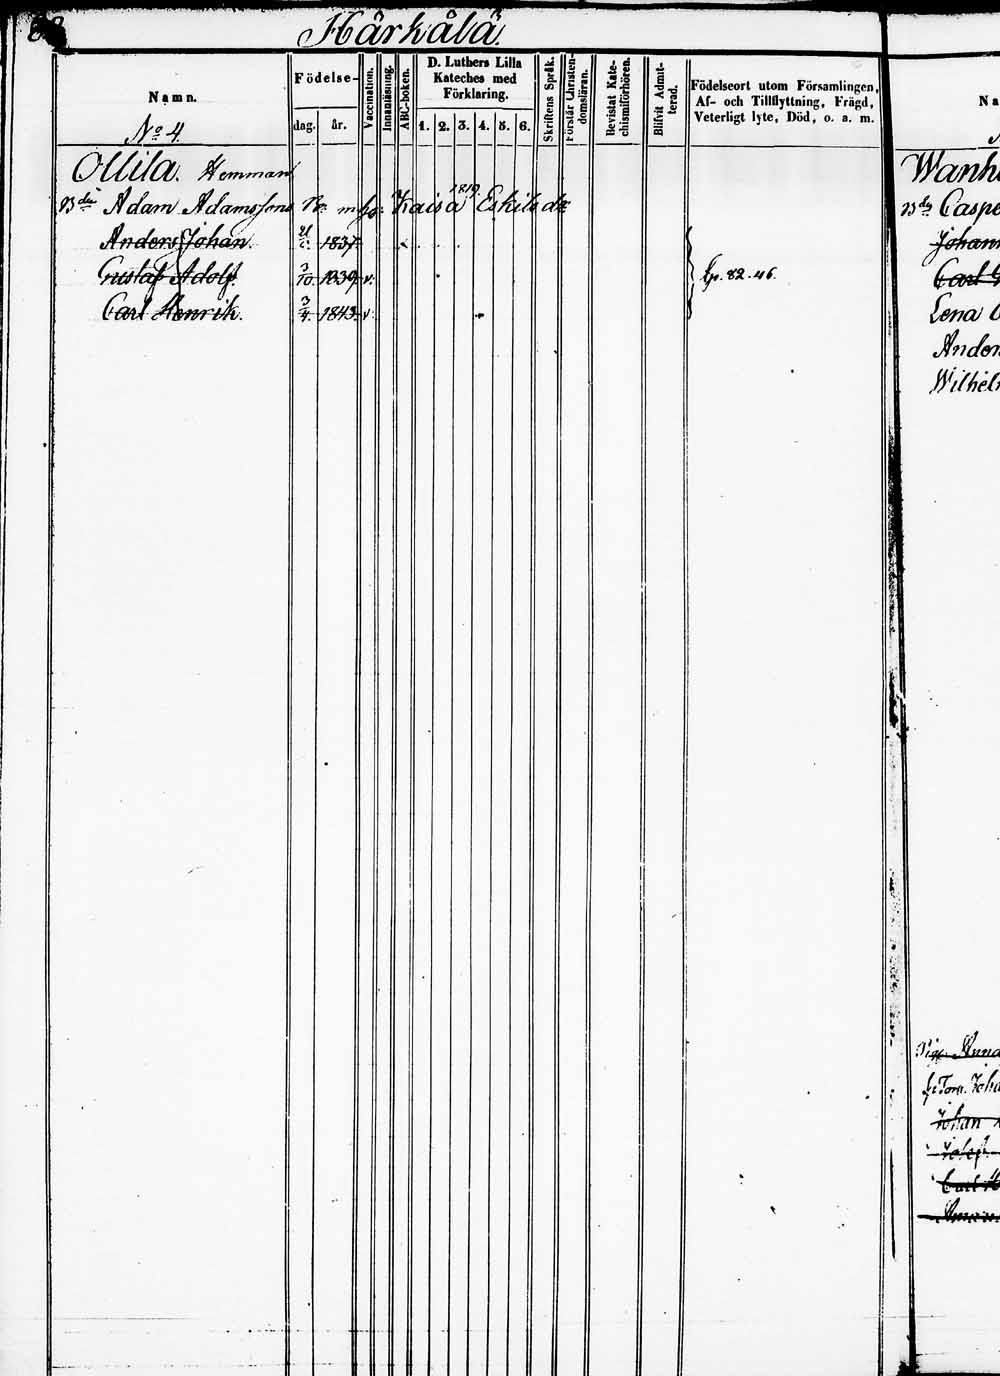 Härkälä.
Namn.
Födelse-
dag.
år.
Vaccination.
Innanläsning.
ABC-boken.
D. Luthers Lilla
Kateches med
Förklaring.
1. 2. 3. 4. 5. 6.
Skriftens Språk.
Förstår Christen-
domsläran.
Bevistat Kate-
chismiförhören.
Blifvit Admit-
terad.
Födelseort utom Församlingen,
Af- och Tillflyttning, Frägd,
Veterligt lyte, Död, o. a. m.
No 4.
Ollila. Hemman
Adam Adamssons
1819
Kaisa Eskilsdr
Anders Johan. 1837
Gustaf Adolf. 3/10. 1839 v.
Carl Henrik. 3/4. 1843. v.
82. 46.
Na
Wanh
Caspe
Johan
Carl G
Lena
Ander
Wilhel
Anna
Joha
Johan